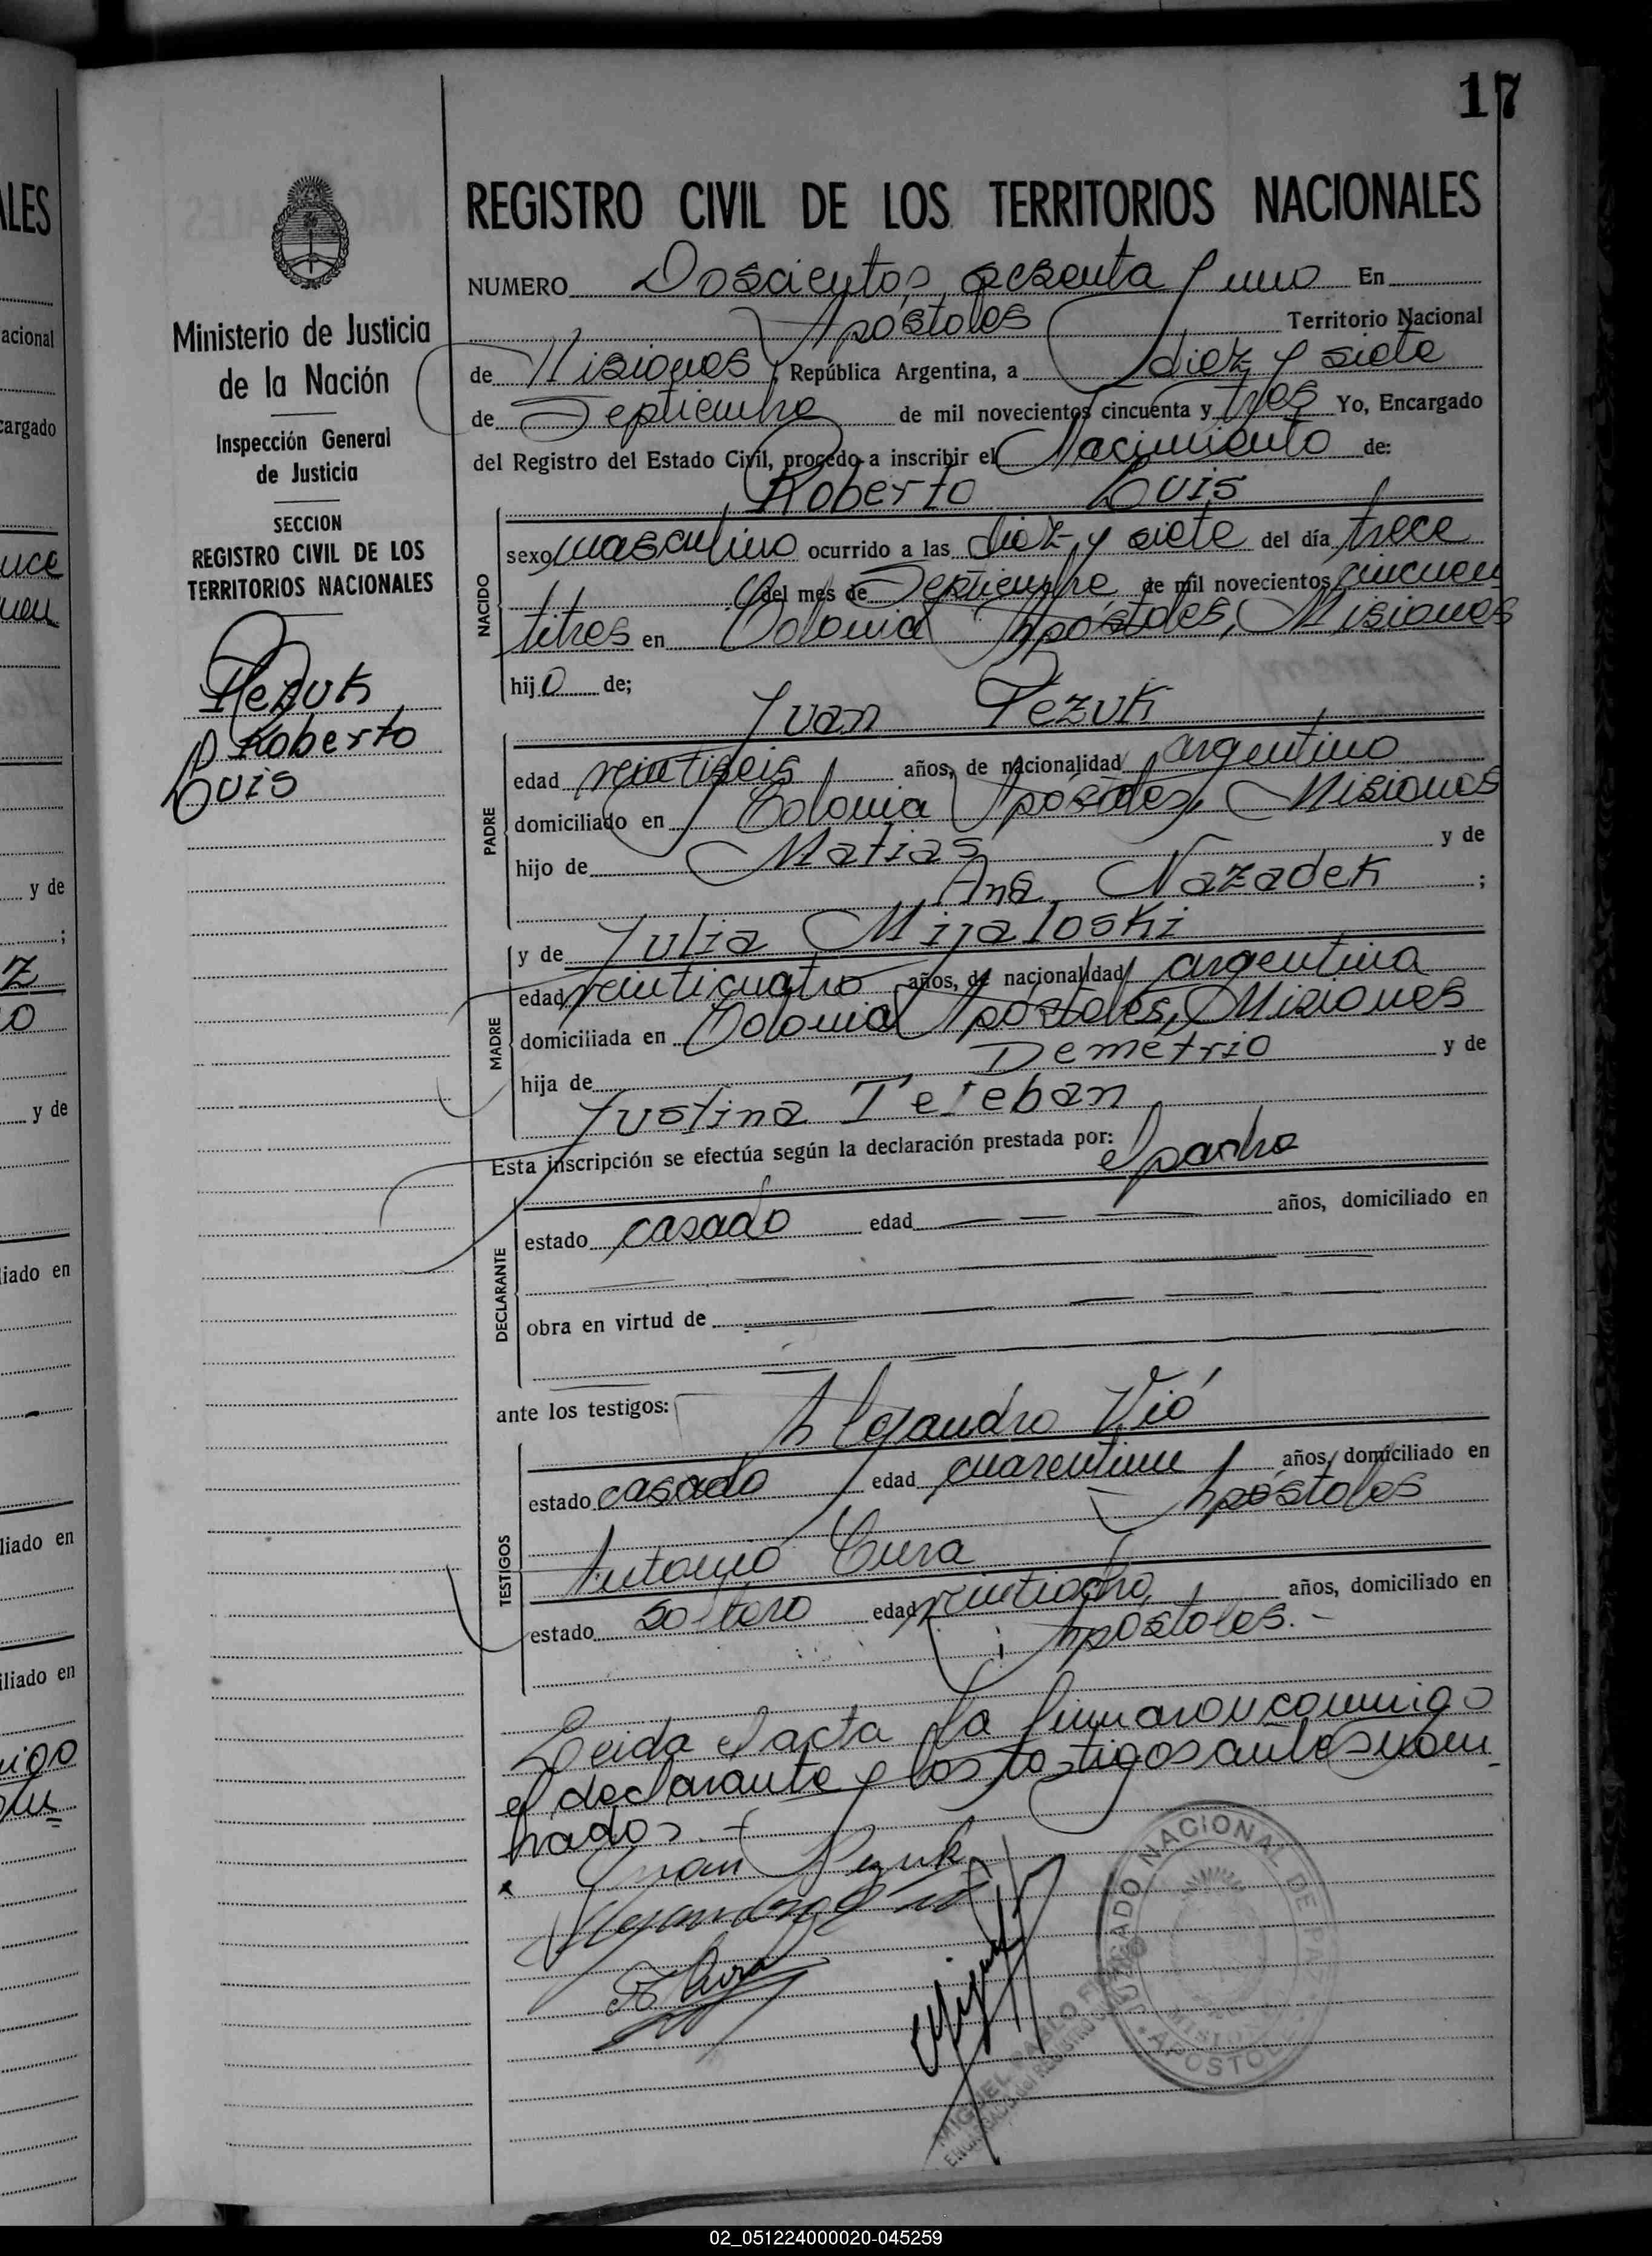 17
REGISTRO CIVIL DE LOS TERRITORIOS NACIONALES
Ministerio de Justicia
de la Nación
Inspección General
de Justicia
SECCION
REGISTRO CIVIL DE LOS
TERRITORIOS NACIONALES
Pezuk
Roberto
Luis
NUMERO Doscientos sesenta y uno En
Apóstoles Territorio Nacional
de Misiones, República Argentina, a diez y siete
de Septiembre de mil novecientos cincuenta y tres Yo, Encargado
del Registro del Estado Civil, procedo a inscribir el Nacimiento de:
Roberto Luis
NACIDO
sexo masculino ocurrido a las diez y siete del día trece
del mes de Septiembre de mil novecientos cincuen
titres en Colonia Apóstoles, Misiones
hijo de;
Juan Pezuk
PADRE
edad veintiseis años, de nacionalidad argentino
domiciliado en Colonia Apóstoles, Misiones
hijo de Matias y de
Ana Nazadek ;
y de Julia Mijaloski
MADRE
edad veinticuatro años, de nacionalidad argentina
domiciliada en Colonia Apóstoles, Misiones
hija de Demetrio y de
Justina Teleban
Esta inscripción se efectúa según la declaración prestada por: el padre
DECLARANTE
estado casado edad — — — años, domiciliado en
obra en virtud de
ante los testigos: Alejandro Vió
TESTIGOS
estado casado edad cuarentiun años, domiciliado en
Apóstoles
Antonio Cura
estado soltero edad veintiocho años, domiciliado en
Apóstoles.-
Leida el acta la firmaron conmigo
el declarante y los testigos antes nom
brados.-
Juan Pezuk
JUZGADO NACIONAL DE PAZ
MISIONES
APOSTOLES
MIGUEL PABLO
ENCARGADO del REGISTRO
ALES
acional
cargado
y de
;
y de
liado en
liado en
iliado en
02_051224000020-045259